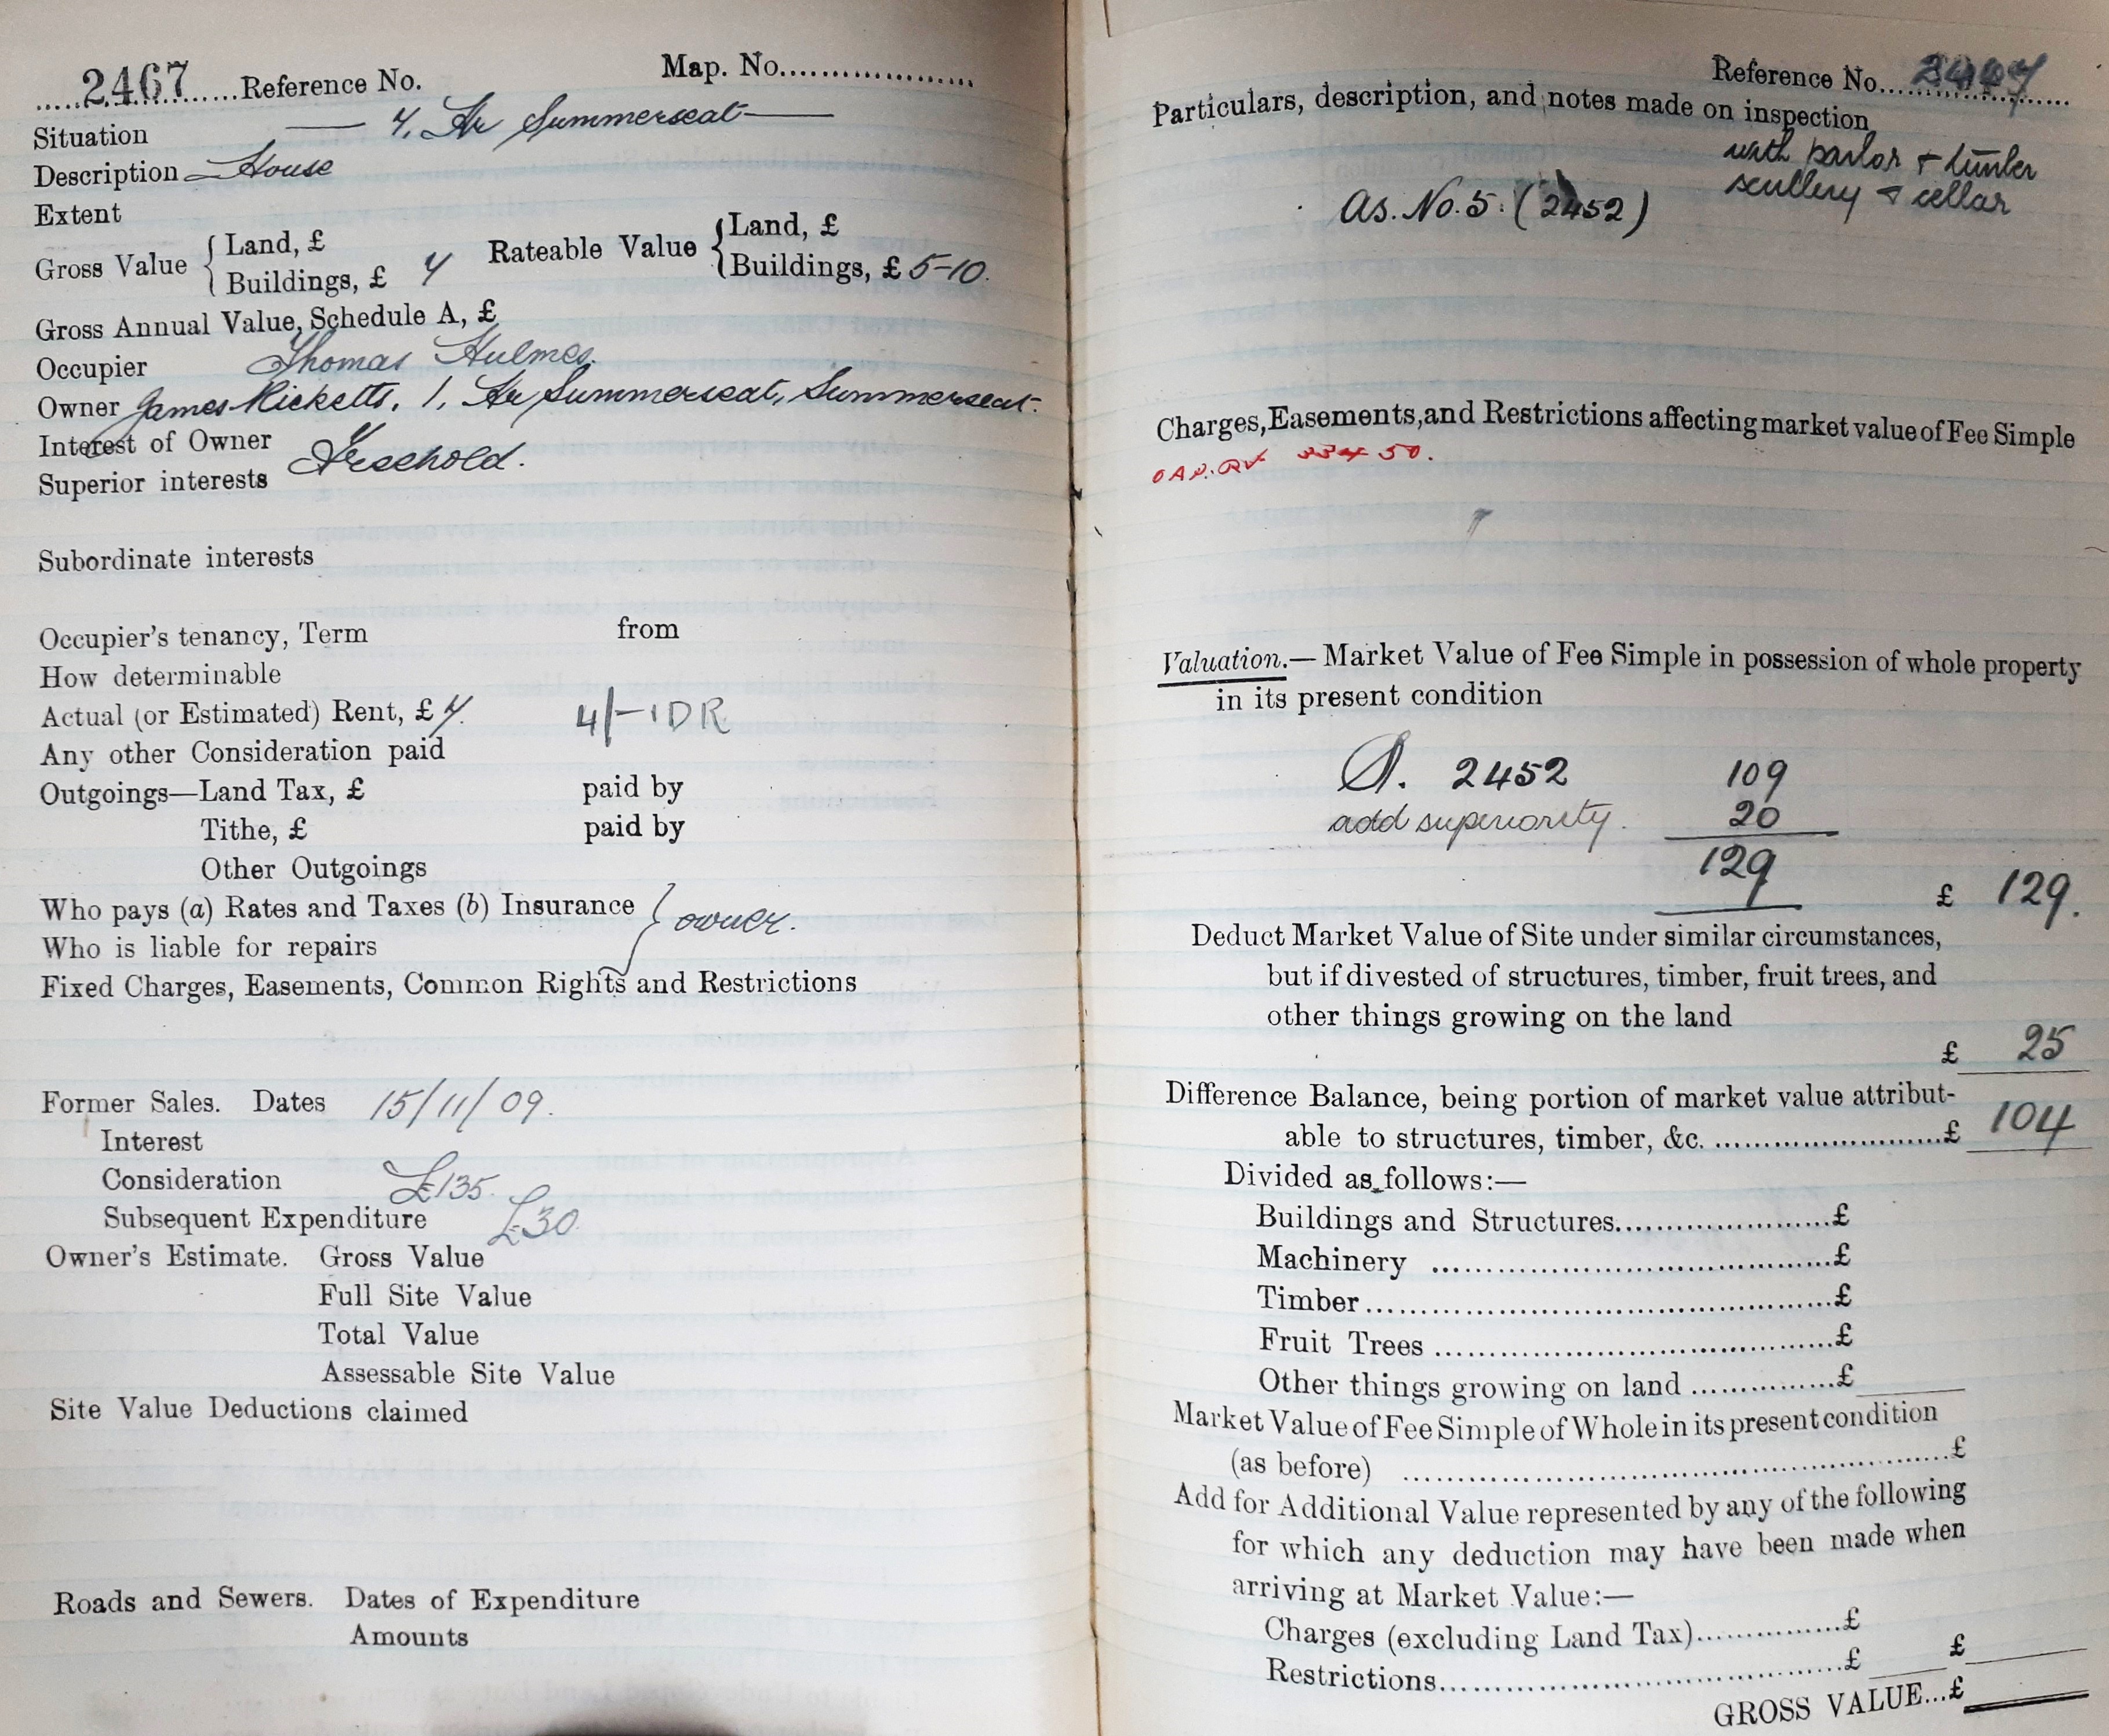 2467 Reference No. Map. No.
Situation — 4, Hr Summerseat —
Description House
Extent
Gross Value { Land, £ Rateable Value { Land, £
Buildings, £ 7 Buildings, £ 5-10.
Gross Annual Value, Schedule A, £
Occupier Thomas Hulmes.
Owner James Ricketts, 1, Hr Summerseat, Summerseat.
Interest of Owner Freehold.
Superior interests
Subordinate interests
Occupier's tenancy, Term from
How determinable
Actual (or Estimated) Rent, £ 7. 4/- DR
Any other Consideration paid
Outgoings—Land Tax, £ paid by
Tithe, £ paid by
Other Outgoings
Who pays (a) Rates and Taxes (b) Insurance } owner.
Who is liable for repairs
Fixed Charges, Easements, Common Rights and Restrictions
Former Sales. Dates 15/11/09.
Interest
Consideration £135.
Subsequent Expenditure £30.
Owner's Estimate. Gross Value
Full Site Value
Total Value
Assessable Site Value
Site Value Deductions claimed
Roads and Sewers. Dates of Expenditure
Amounts
Reference No. 2467
Particulars, description, and notes made on inspection
with parlor + timber
As. No. 5. (2452) scullery + cellar
Charges, Easements, and Restrictions affecting market value of Fee Simple
50.
Valuation.— Market Value of Fee Simple in possession of whole property
in its present condition
2452 109
add superiority. 20
129
£ 129.
Deduct Market Value of Site under similar circumstances,
but if divested of structures, timber, fruit trees, and
other things growing on the land
£ 25
Difference Balance, being portion of market value attribut-
able to structures, timber, &c. £ 104
Divided as follows:—
Buildings and Structures £
Machinery £
Timber £
Fruit Trees £
Other things growing on land £
Market Value of Fee Simple of Whole in its present condition
(as before) £
Add for Additional Value represented by any of the following
for which any deduction may have been made when
arriving at Market Value:—
Charges (excluding Land Tax) £
Restrictions £ £
GROSS VALUE...£